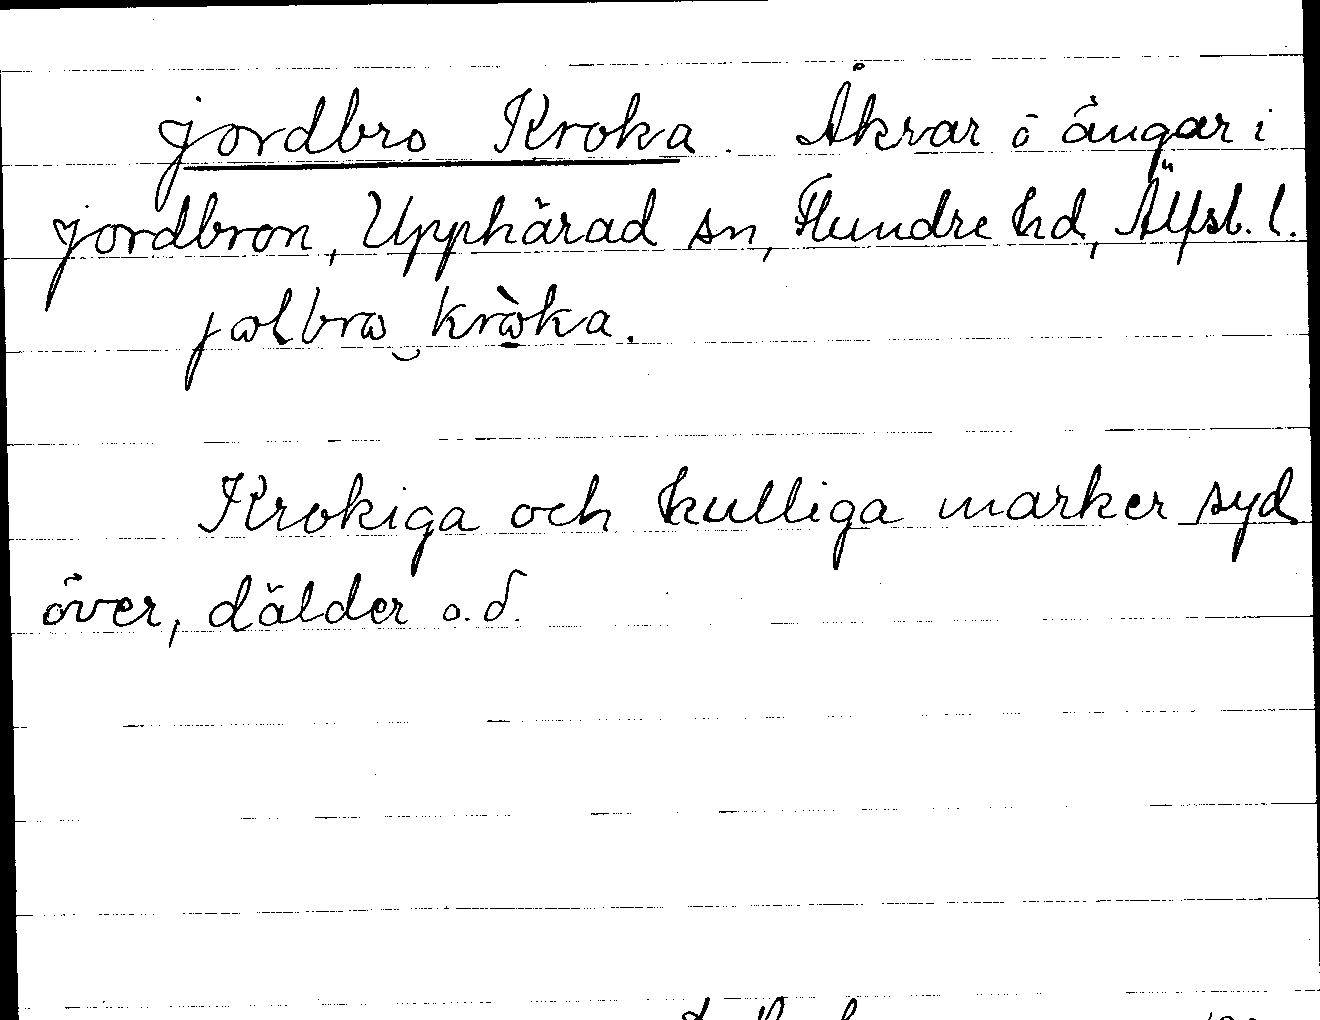 jordbro Kroka. Åkrar ō ängar i
jordbron, Upphärad sn, Flundre hd, Älfsb. l.
Krokiga och kulliga marker syd
över, dälder o.d.